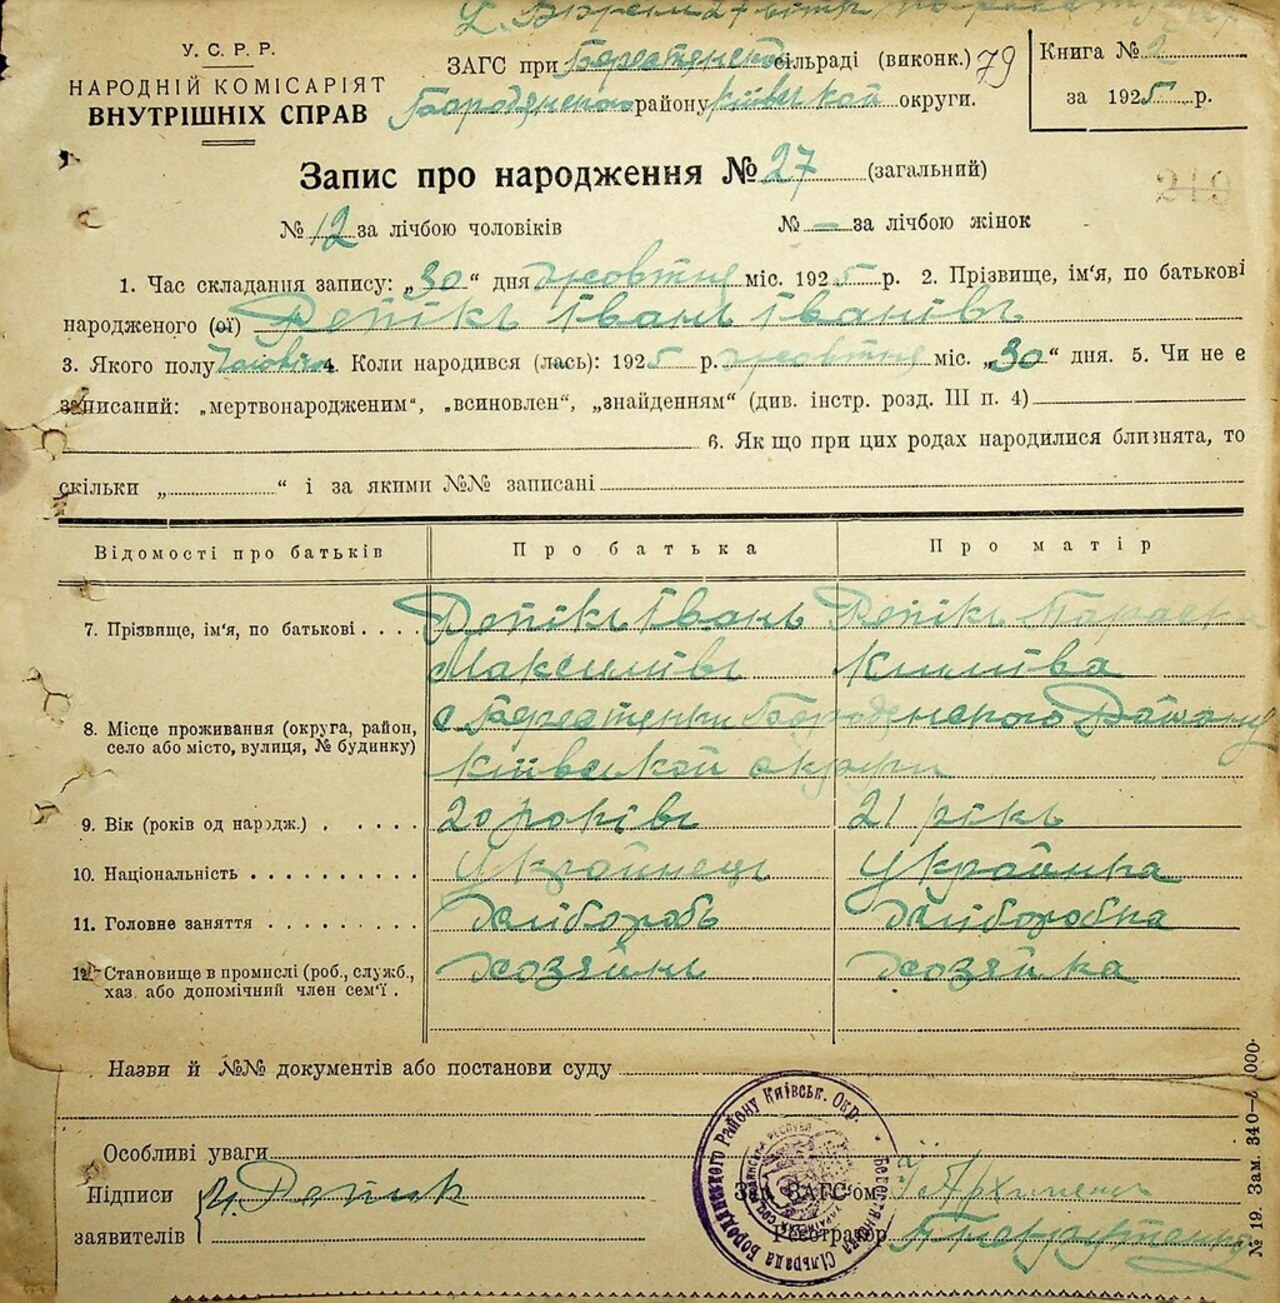 У. С. Р. Р.
НАРОДНІЙ КОМІСАРІЯТ
ВНУТРІШНІХ СПРАВ
ЗАГС при Берестянской сільраді (виконк.) 79
Бородянского району Київської округи.
Книга № 2
за 1925 р.
Запис про народження № 27 (загальний)
219
№ 12 за лічбою чоловіків № — за лічбою жінок
1. Час складання запису: „30“ дня жовтня міс. 1925 р. 2. Прізвище, ім'я, по батькові
народженого (ої) Репікъ Іванъ Іванівъ
3. Якого полу 4. Коли народився (лась): 1925 р. жовтня міс. „30“ дня. 5. Чи не є
записаний: „мертвонародженим“, „всиновлен“, „знайденням“ (див. інстр. розд. III п. 4)
6. Як що при цих родах народилися близнята, то
скільки „ “ і за якими №№ записані
Відомості про батьків Про батька Про матір
7. Прізвище, ім'я, по батькові . . . . Репікъ Іванъ Репікъ Параска
Максимівъ Климіва
8. Місце проживання (округа, район,
село або місто, вулиця, № будинку)
с Берестянки Бороденского Району
Київської округи
9. Вік (років од народж.) . . . . . 20 роківъ 21 рікъ
10. Національність . . . . . . . . . . Украйнець Украйнка
11. Головне заняття . . . . . . . . . Хліборобъ Хліборобка
12. Становище в промислі (роб., служб.,
хаз. або допомічний член сем'ї .
Хозяйнъ Хозяйка
Назви й №№ документів або постанови суду
Особливі уваги
Підписи
заявителів
И. Репик
Зав. ЗАГС'ом
Реєстратор
Бородянського Району Київськ. Окр.
Берестянська Сільрада
№ 19. Зам. 340—